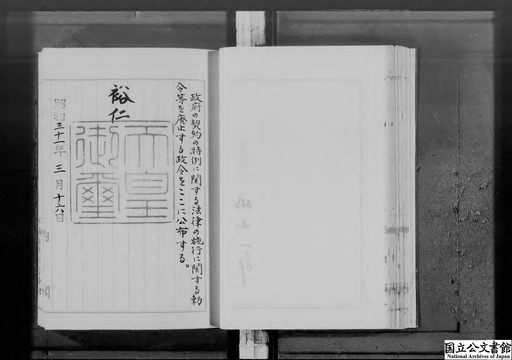 政府の契約の特例に関する法律の施行に関する勅
令等を廃止する政令をここに公布する。
裕仁
天皇
御璽
昭和三十一年三月十六日
国立公文書館
National Archives of Japan